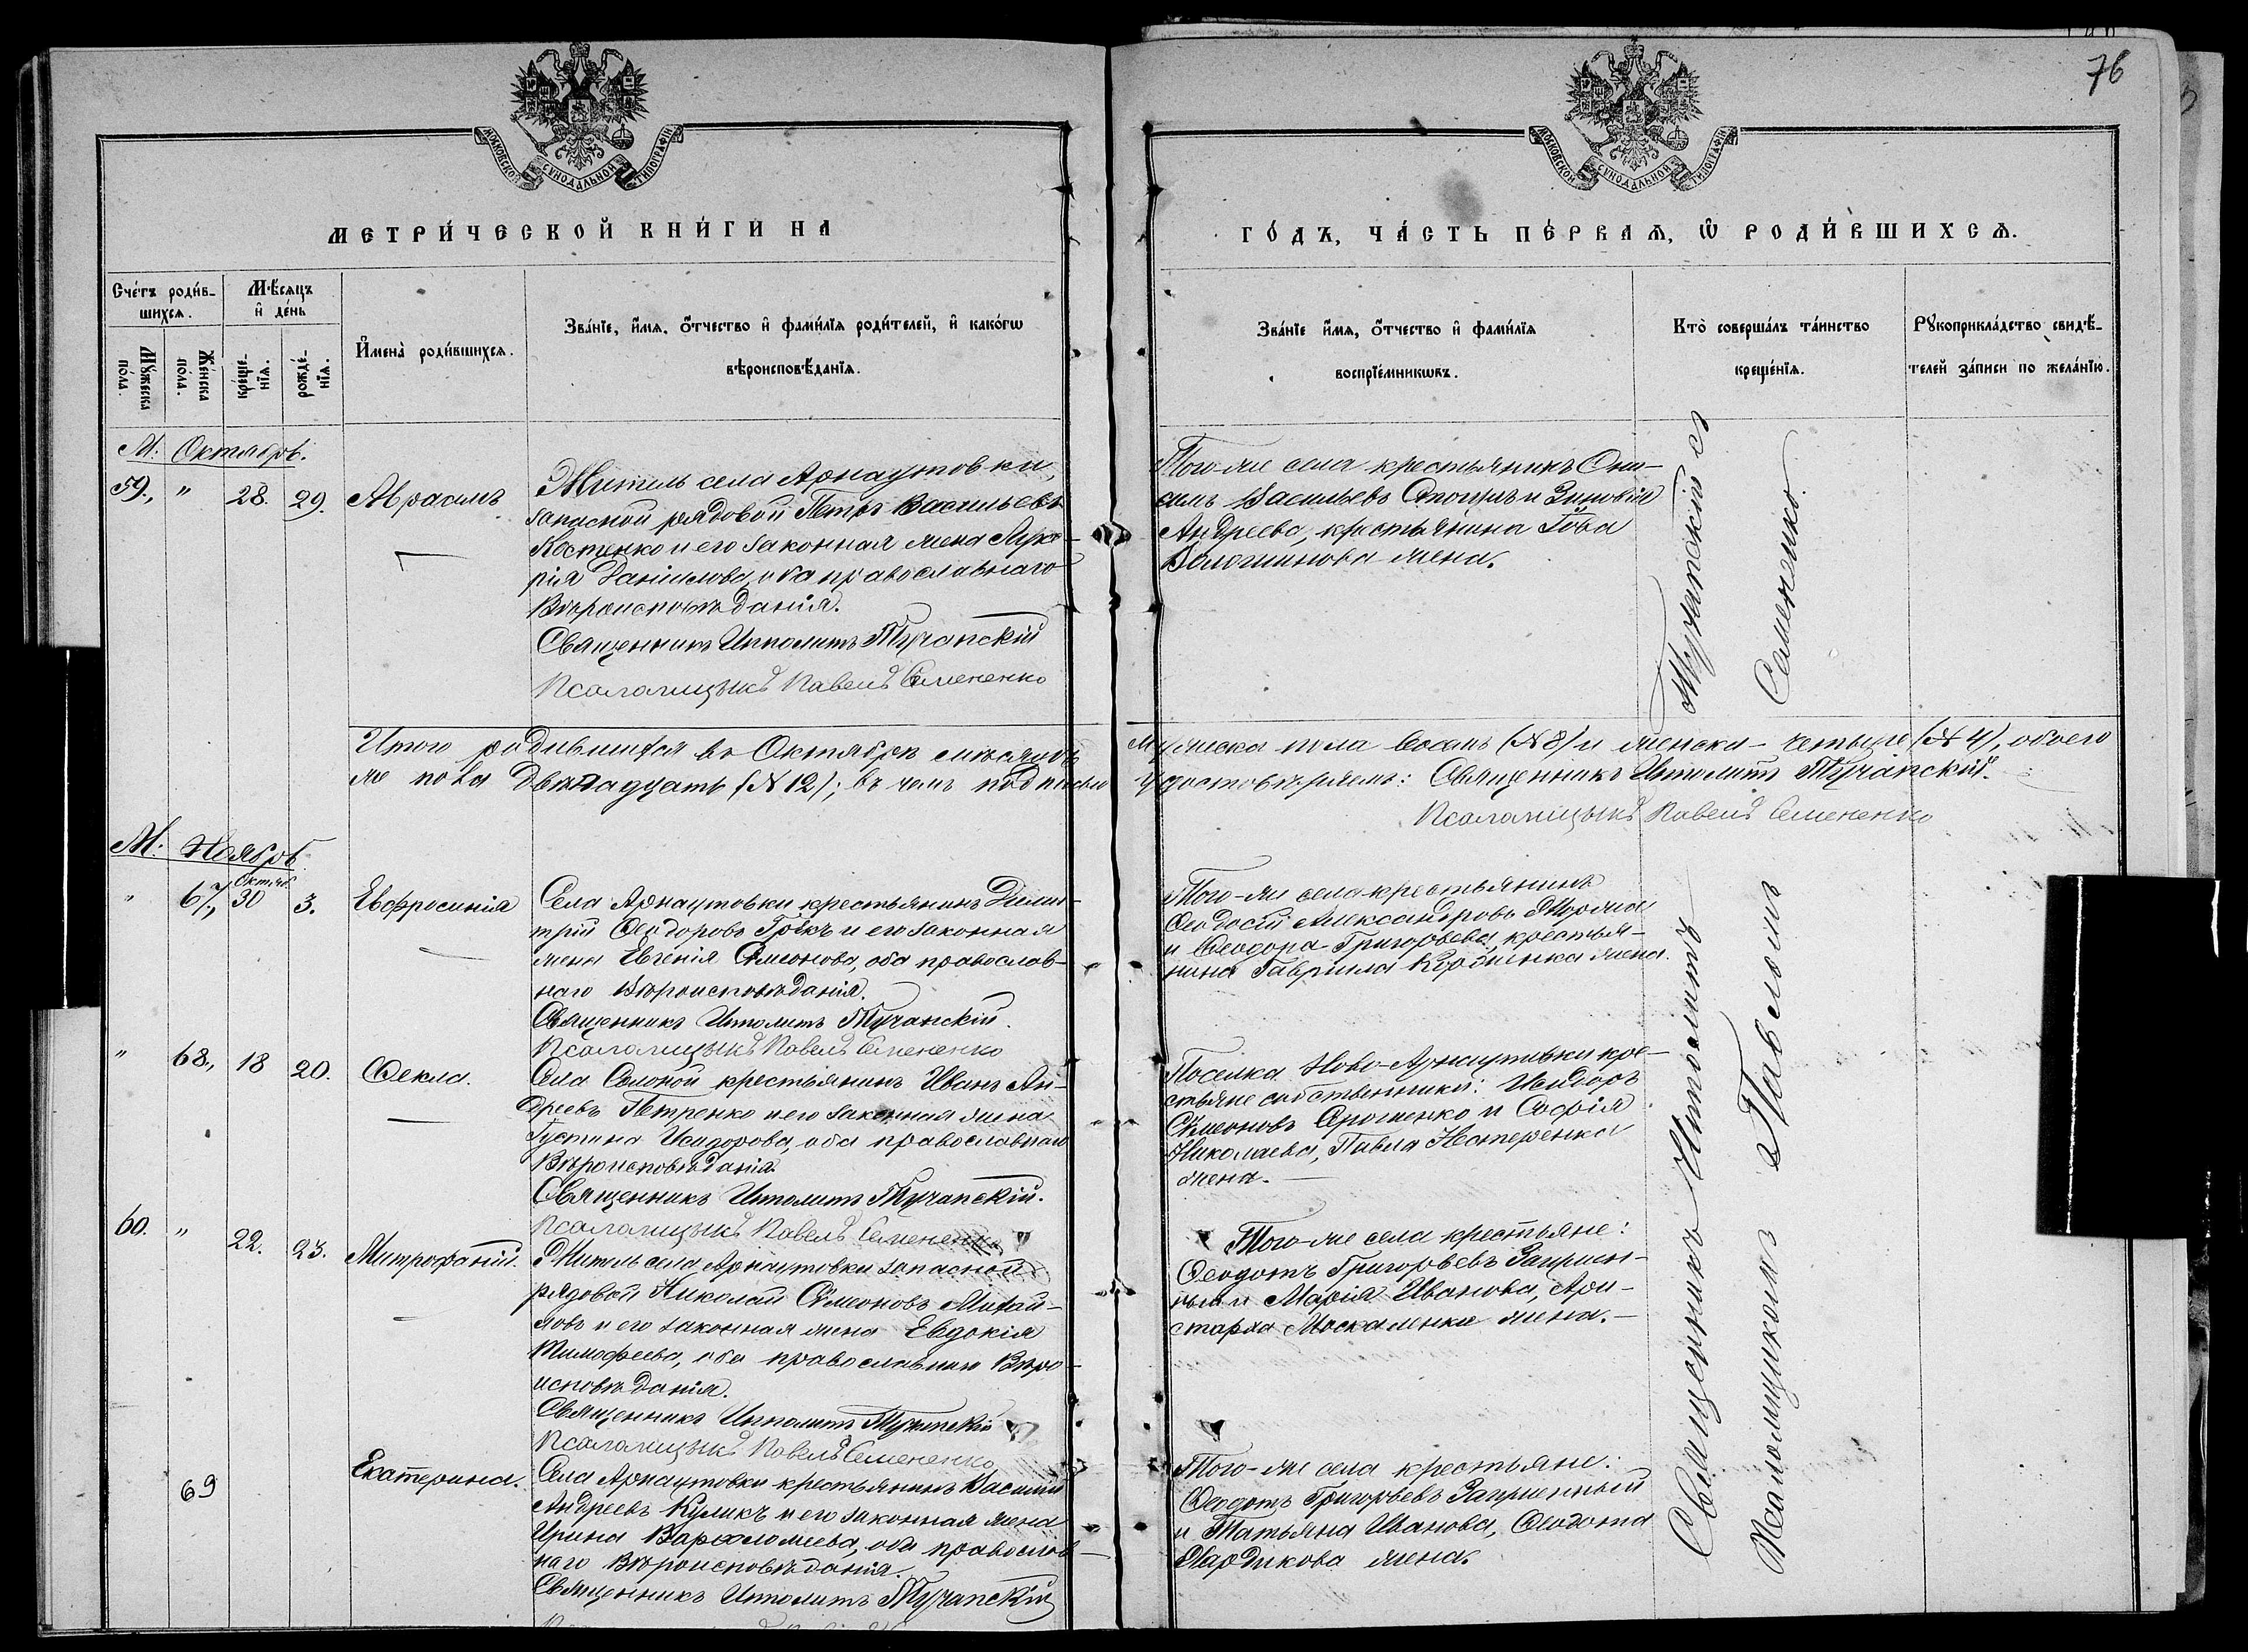 76
МОСКОВСКОЙ СѴНОДАЛЬНОЙ ТИПОГРАФІИ
МОСКОВСКОЙ СѴНОДАЛЬНОЙ ТИПОГРАФІИ
МЕТРИ́ЧЕСКОЙ КНИ́ГИ НА
ГО́ДЪ, ЧА́СТЬ ПЕ́РВАѦ, Ѡ РОДИ́ВШИХСѦ.
Сче́тъ роди́в-
шихсѧ.
Мѣ́сѧцъ
и де́нь
Мꙋ́жеска
по́ла.
Же́нска
по́ла.
креще́-
нїѧ.
рожде́-
нїѧ.
И҆мена̀ роди́вшихсѧ.
Зва́нїе, и҆́мѧ, о҆́тчество и҆ фами́лїѧ роди́телей, и҆ како́гѡ
вѣроисповѣ́данїѧ.
Зва́нїе и҆́мѧ, о҆́тчество и҆ фами́лїѧ
воспрїе́мникѡвъ.
Кто̀ соверша́лъ та́инство
креще́нїѧ.
Рꙋкоприкла́дство свидѣ́-
телей за́писи по жела́нїю.
М. Октябрь.
59., " 28. 29. Авраамъ
Житель села Арнаутовки,
запасной рядовой Петръ Васильевъ
Костенко и его законная жена
рія Даніилова, оба православнаго
Вѣроисповѣданія.
Священникъ Ипполитъ Тучапскій
Псаломщикъ Павелъ Семененко
Того-же села крестьянинъ Они-
симъ Васильевъ и Зиновія
Андреева, крестьянина Іова
Волошинова жена.
Итого родившихся въ Октябрѣ мѣсяцѣ мужеска пола восемь (№ 8) и женска - четыре (№ 4), обоего
же пола двѣнадцать (№ 12); въ чемъ подписью удостовѣряемъ: Священникъ Ипполитъ Тучапскій.
Псаломщикъ Павелъ Семененко
М. Ноябрь
" 67., Октяб. 30 3. Евфросинія
Села Арнаутовки крестьянинъ Дими-
трій Ѳеодоровъ Грікъ и его законная
жена Евгенія Симеонова, оба православ-
наго Вѣроисповѣданія.
Священникъ Ипполитъ Тучапскій.
Псаломщикъ Павелъ Семененко
Того-же села крестьянинъ
Ѳеодосій Александровъ
и Ѳеодора Григорьева, крестья-
нина Гавріила жена.
" 68., 18 20. Ѳекла.
Села Соленой крестьянинъ Иванъ Ан-
дреевъ Петренко и его законная жена
Густина Исидорова, оба православнаго
Вѣроисповѣданія.
Священникъ Ипполитъ Тучапскій.
Псаломщикъ Павелъ Семененко
Поселка Ново-Арнаутовки кре-
стьяне собственники: Исидоръ
Симеоновъ Ярошенко и Софія
Николаева, Павла Нестеренка
жена.
60. " 22. 23. Митрофаній.
Житель села Арнаутовки запасной
рядовой Николай Симеоновъ Михай-
ловъ и его законная жена Евдокія
Тимофеева, оба православнаго Вѣро-
исповѣданія.
Священникъ Ипполитъ Тучапскій
Псаломщикъ Павелъ Семененко
Того-же села крестьяне:
Ѳеодотъ Григорьевъ
и Марія Иванова, Ари-
старха Москаленка жена.
69 Екатерина.
Села Арнаутовки крестьянинъ Василій
Андреевъ Куликъ и его законная жена
Ирина Варѳоломеева, оба православ-
наго Вѣроисповѣданія.
Священникъ Ипполитъ Тучапскій
Того-же села крестьяне:
Ѳеодотъ Григорьевъ
и Татьяна Иванова, Ѳеодота
жена.
Священникъ Ипполитъ Тучапскій съ
Псаломщикомъ Павломъ Семененко.